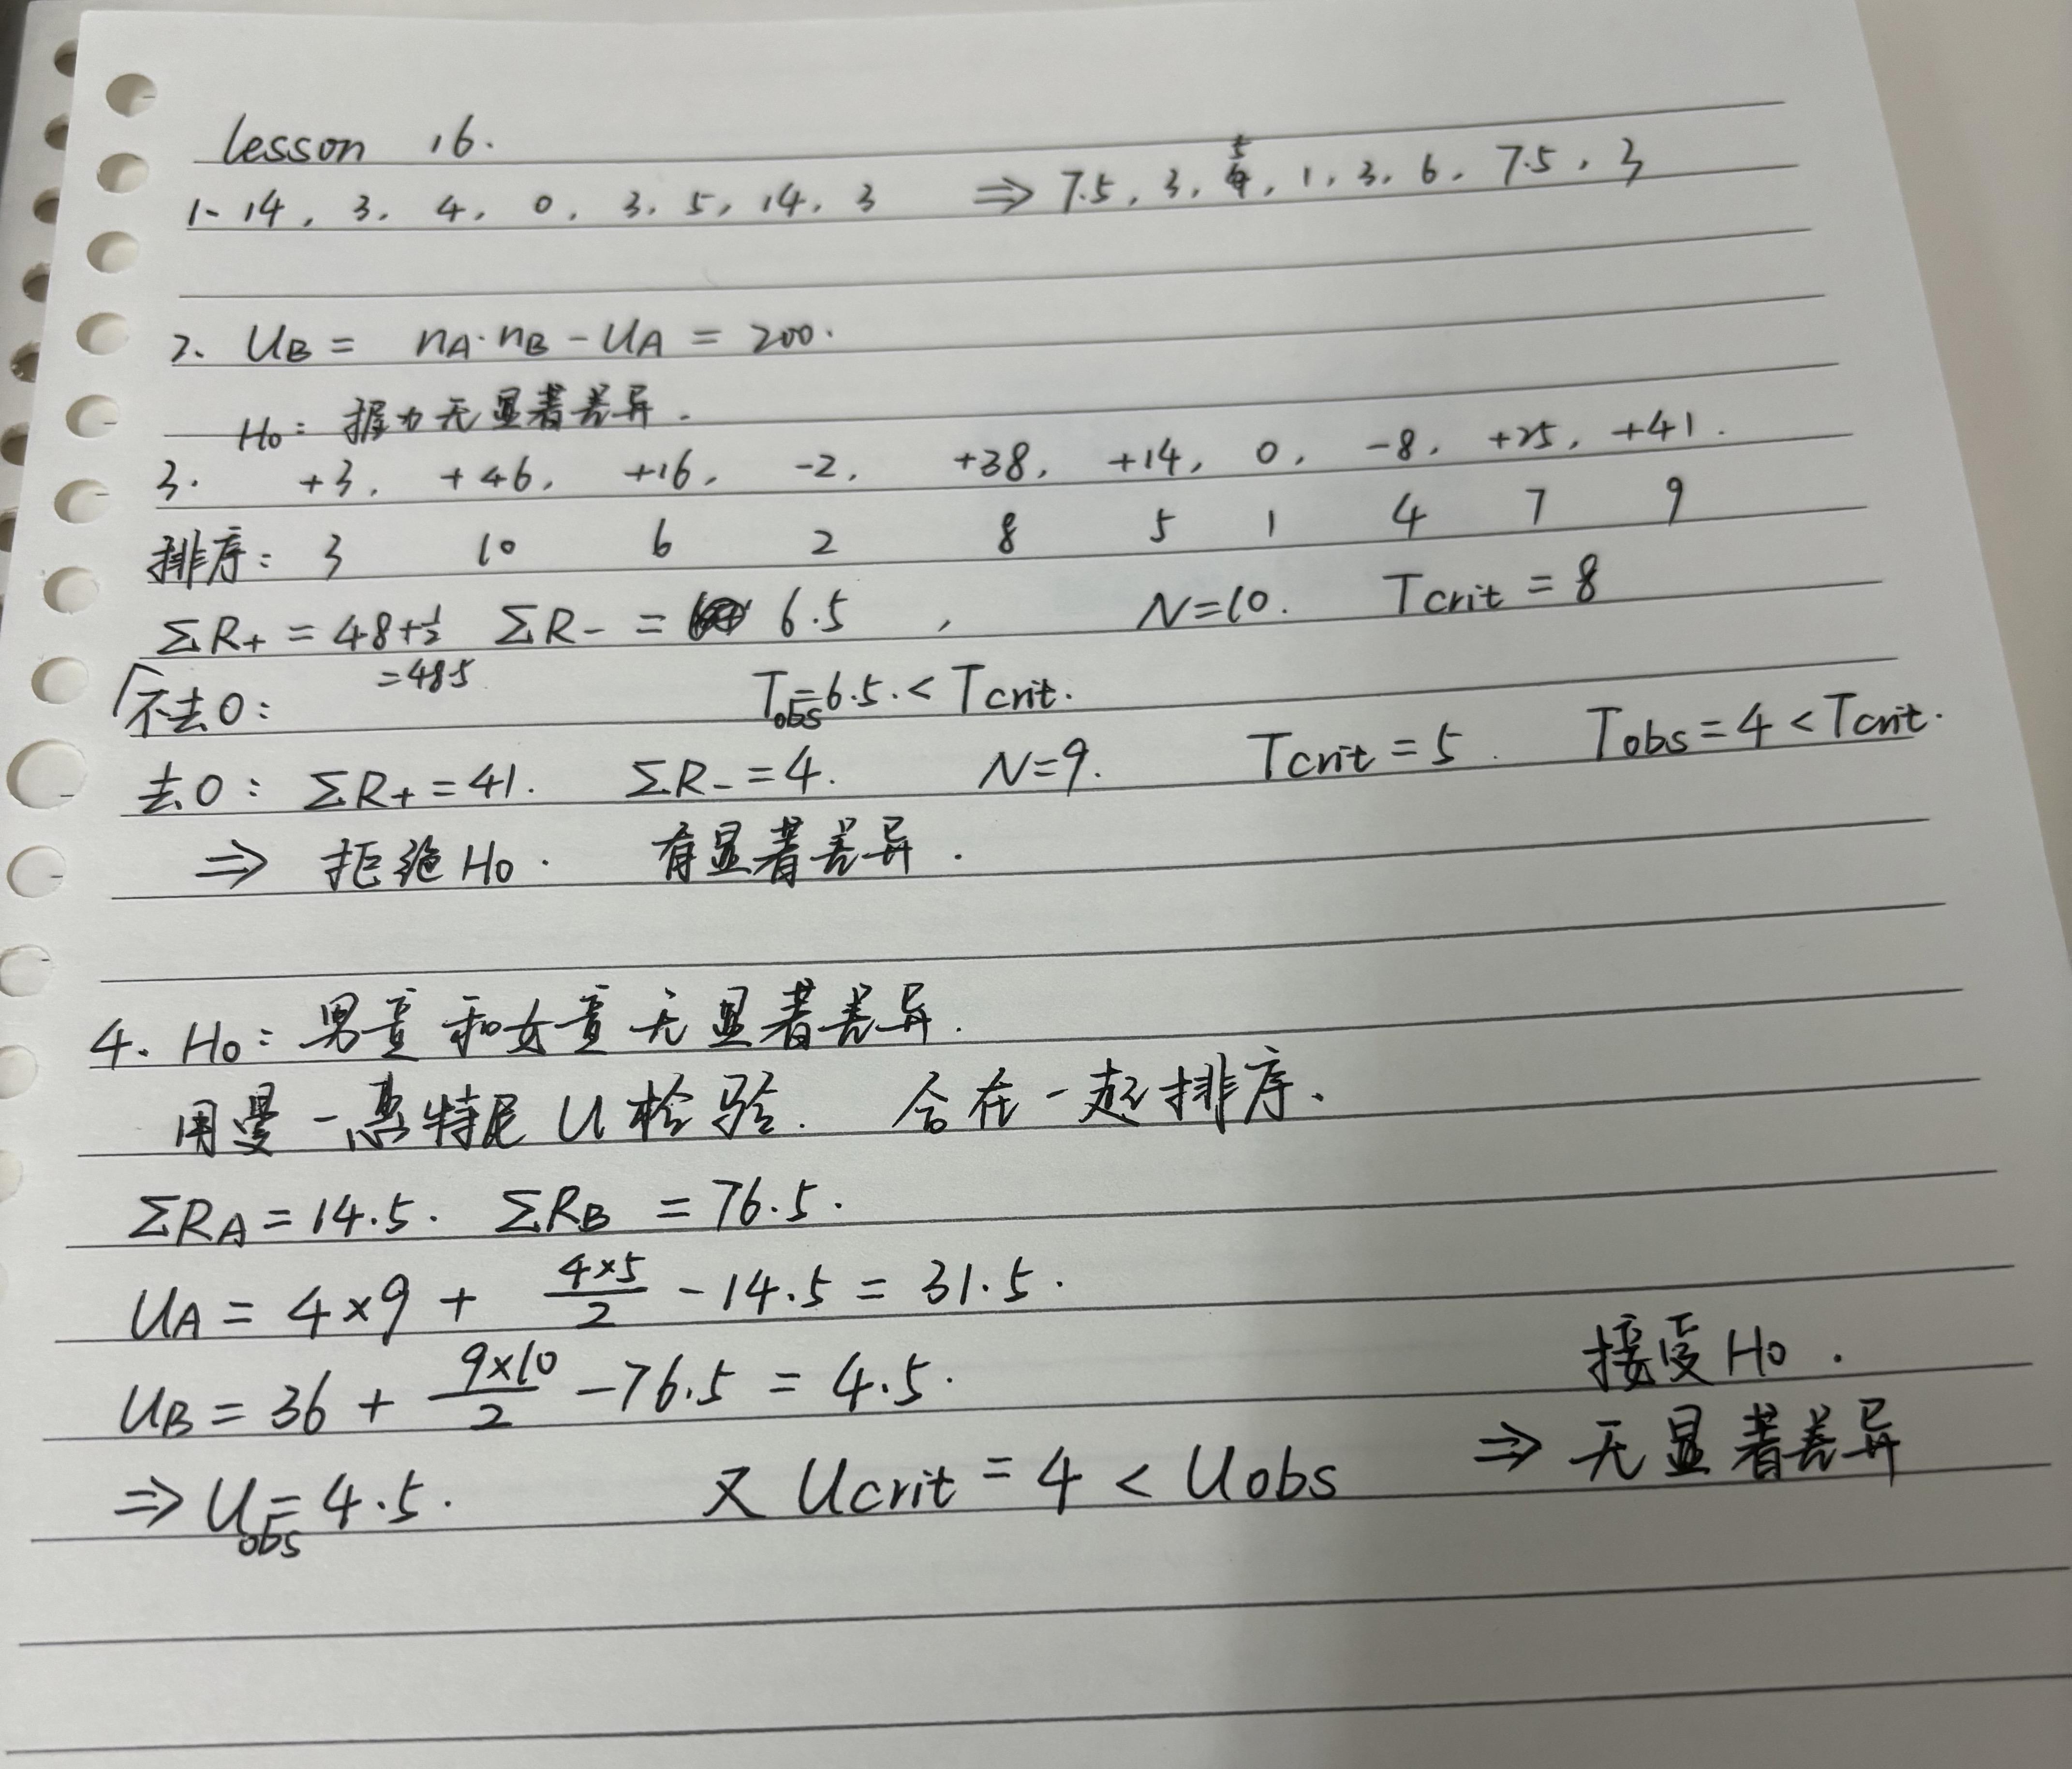 lesson 16.
1. 14, 3, 4, 0, 3, 5, 14, 3 ⇒ 7.5, 3, 5, 1, 3, 6, 7.5, 3
2. UB = nA·nB - UA = 200.
H0: 握力无显著差异.
3. +3, +46, +16, -2, +38, +14, 0, -8, +25, +41.
排序: 3 10 6 2 8 5 1 4 7 9
ΣR+ = 48+½ ΣR- = 6.5, N=10. Tcrit = 8
=48.5
不去0: Tobs=6.5 < Tcrit.
去0: ΣR+ = 41. ΣR- = 4. N=9. Tcrit = 5. Tobs = 4 < Tcrit.
⇒ 拒绝H0. 有显著差异.
4. H0: 男童和女童无显著差异.
用曼-惠特尼U检验. 合在一起排序.
ΣRA = 14.5. ΣRB = 76.5.
UA = 4×9 + 4×5/2 - 14.5 = 31.5.
UB = 36 + 9×10/2 - 76.5 = 4.5.
接受H0.
⇒ Uobs = 4.5. 又 Ucrit = 4 < Uobs ⇒ 无显著差异